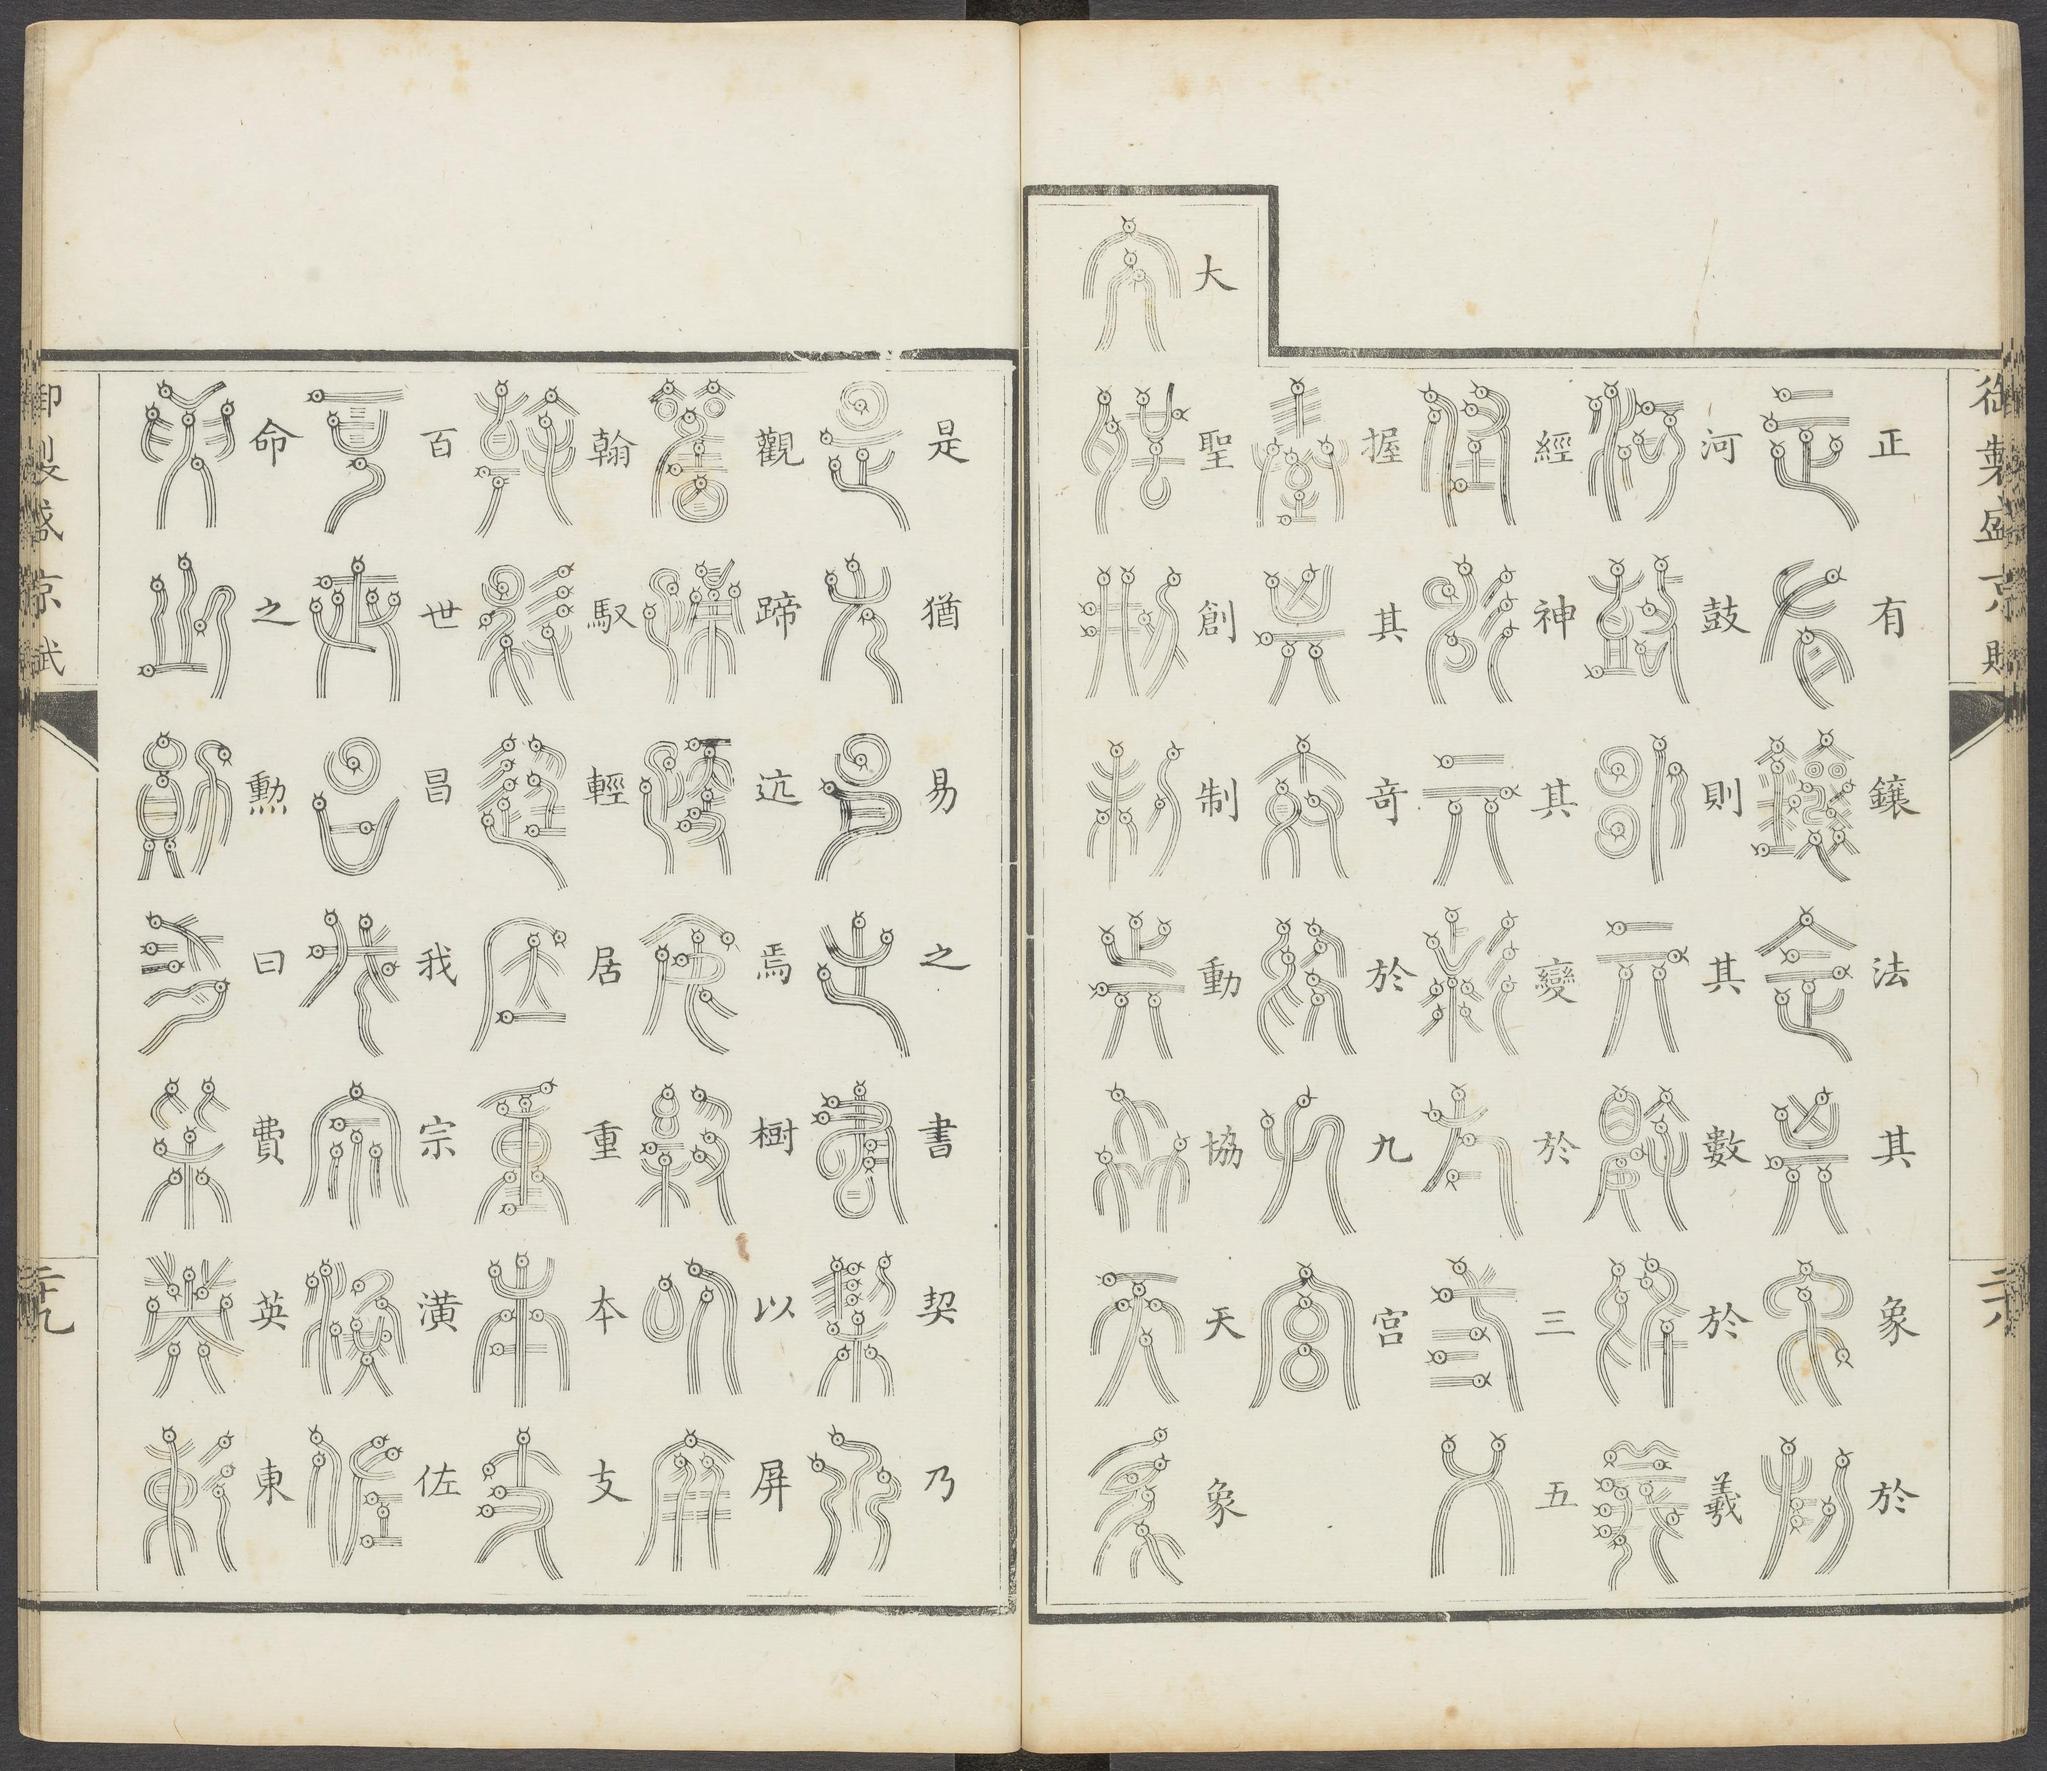 御製盛京賦
二十八
正有鑲法其象於
河鼓則其數於羲
經神其變於三五
握其奇於九宮
大聖創制動協天象
是猶易之書契乃
觀蹄迒焉樹以屏
翰馭輕居重本支
百世昌我宗潢佐
命之勲曰費英東
御製盛京賦
二十九